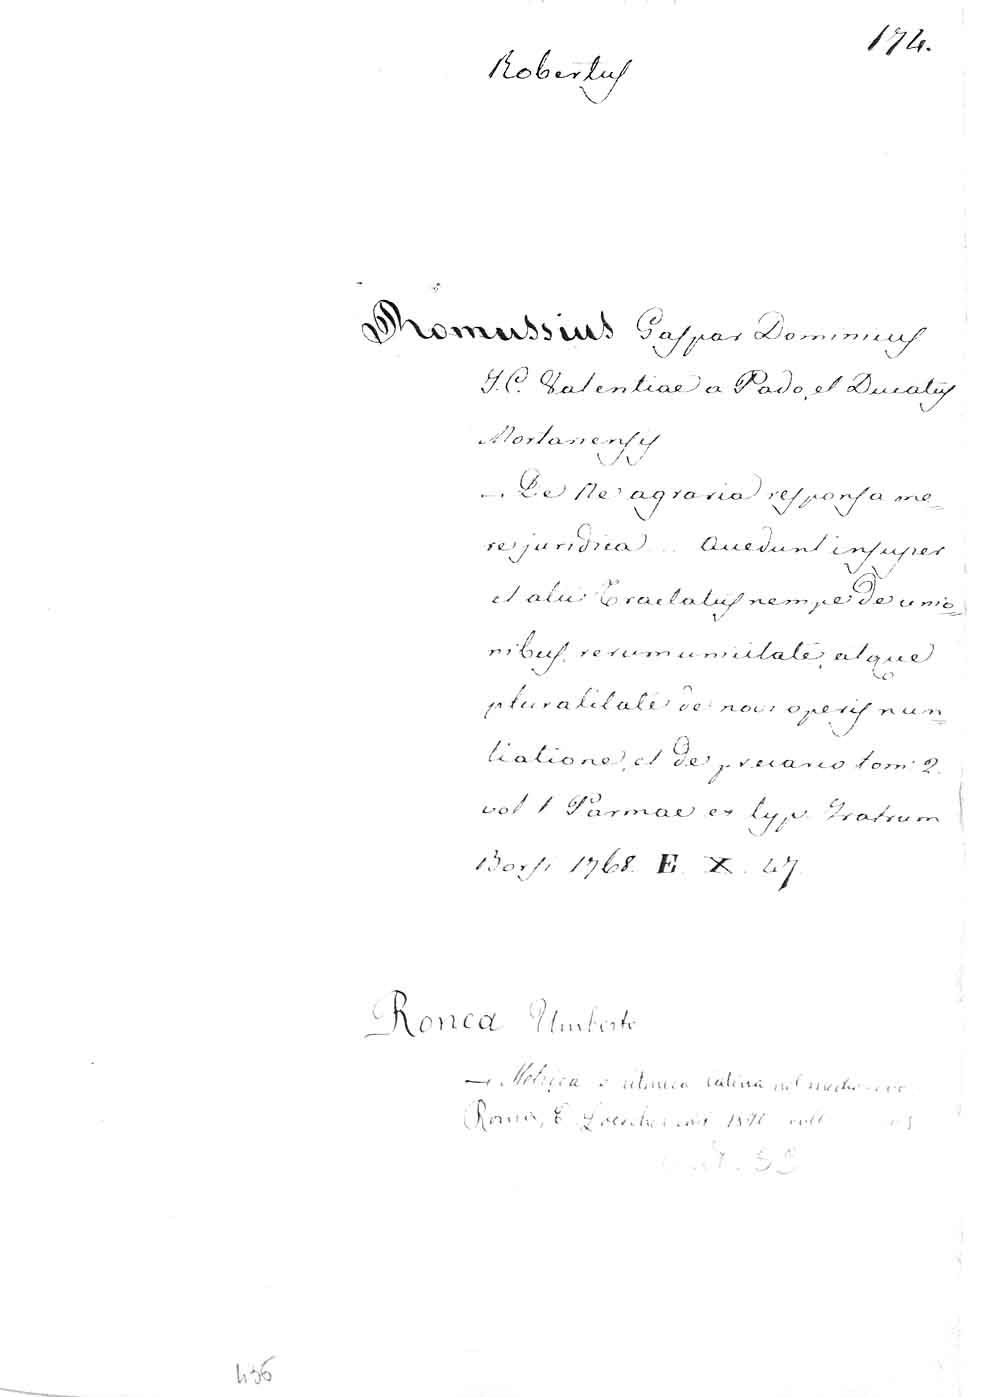 174.
Robertus
Romussius Gaspar Dominicus
J. C. Valentiae a Pado, et Ducatus
Mortariensis
— De Re agraria responsa me=
re juridica ... Accedunt insuper
et alii Tractatus nempe de unio=
nibus, rerum unicitate, atque
pluralitate de novi operis nun=
tiatione, et de precario tomi 2.
vol 1 Parmae ex typ. Fratrum
Borsi 1768. E. X. 47.
Ronca Umberto
— Metrica e ritmica latina nel medio-evo
Roma, E. Loescher 1890
436